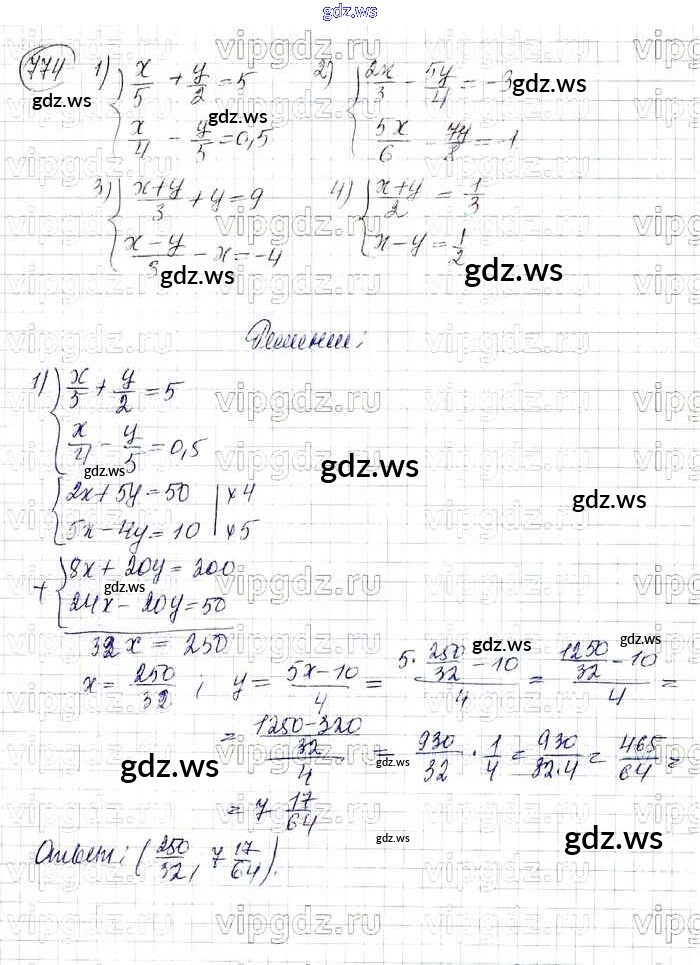 gdz.ws
774
1) { x/5 + y/2 = 5
x/4 - y/5 = 0,5
2) { 2x/3 - 5y/4 = -3
5x/6 - 7y/8 = -1
3) { x+y/3 + y = 9
x-y/3 - x = -4
4) { x+y/2 = 1/3
x-y = 1/2
Решение:
1) { x/5 + y/2 = 5
x/4 - y/5 = 0,5
{ 2x + 5y = 50 | x 4
5x - 4y = 10 | x 5
+ { 8x + 20y = 200
24x - 20y = 50
32x = 250
x = 250/32 ; y = 5x-10/4 = 5·250/32 - 10/4 = 1250/32 - 10/4 =
= 1250-320/32/4 = 930/32 · 1/4 = 930/32·4 = 465/64 =
= 7 17/64
Ответ: (250/32, 7 17/64).